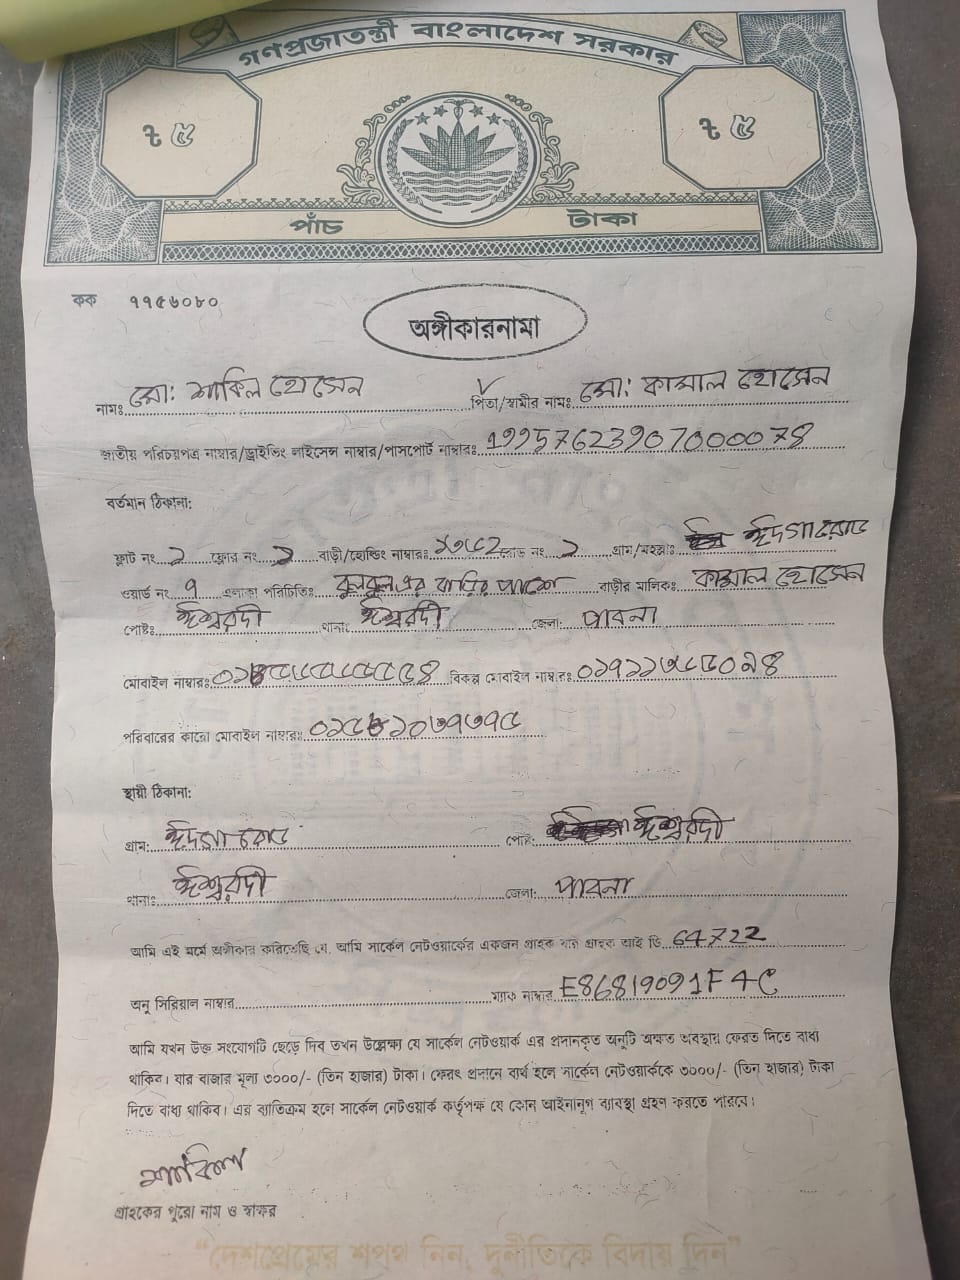 গণপ্রজাতন্ত্রী বাংলাদেশ সরকার
৳ ৫ ৳ ৫
পাঁচ টাকা
কক ৭৭৫৬০৮০
অঙ্গীকারনামা
নামঃ মো: শাকিল হোসেন পিতা/স্বামীর নামঃ মো: কামাল হোসেন
জাতীয় পরিচয়পত্র নাম্বার/ড্রাইভিং লাইসেন্স নাম্বার/পাসপোর্ট নাম্বারঃ 19957623907000078
বর্তমান ঠিকানা:
ফ্লাট নং ১ ফ্লোর নং ১ বাড়ী/হোল্ডিং নাম্বারঃ রোড নং ১ গ্রাম/মহল্লাঃ ঈদগারোড
ওয়ার্ড নং ৭ এলাকা পরিচিতিঃ বুলবুল এর বাড়ির পাশে বাড়ীর মালিকঃ কামাল হোসেন
পোষ্টঃ ঈশ্বরদী থানা: ঈশ্বরদী জেলা: পাবনা
মোবাইল নাম্বারঃ বিকল্প মোবাইল নাম্বারঃ
পরিবারের কারো মোবাইল নাম্বারঃ
স্থায়ী ঠিকানা:
গ্রাম: ঈদগা রোড পোষ্ট: ঈশ্বরদী
থানাঃ ঈশ্বরদী জেলা: পাবনা
আমি এই মর্মে অঙ্গীকার করিতেছি যে, আমি সার্কেল নেটওয়ার্কের একজন গ্রাহক যার গ্রাহক আই ডি 64722
অনু সিরিয়াল নাম্বার ম্যাক নাম্বার E86819091F4C
আমি যখন উক্ত সংযোগটি ছেড়ে দিব তখন উল্লেক্ষ্য যে সার্কেল নেটওয়ার্ক এর প্রদানকৃত অনুটি অক্ষত অবস্থায় ফেরত দিতে বাধ্য
থাকিব। যার বাজার মূল্য ৩০০০/- (তিন হাজার) টাকা। ফেরৎ প্রদানে ব্যর্থ হলে সার্কেল নেটওয়ার্ককে ৩০০০/- (তিন হাজার) টাকা
দিতে বাধ্য থাকিব। এর ব্যাতিক্রম হলে সার্কেল নেটওয়ার্ক কর্তৃপক্ষ যে কোন আইনানূগ ব্যাবস্থা গ্রহণ করতে পারবে।
শাকিল
গ্রাহকের পুরো নাম ও স্বাক্ষর
“দেশপ্রেমের শপথ নিন, দুর্নীতিকে বিদায় দিন”